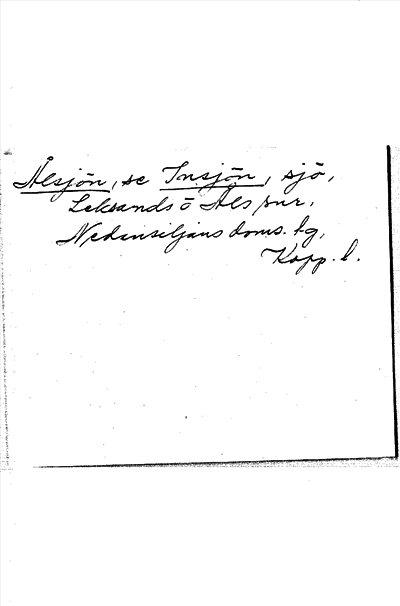 Ålsjön, se Insjön, sjö,
Leksands o Åls snr,
Nedansiljans doms. tg,
Kopp. l.